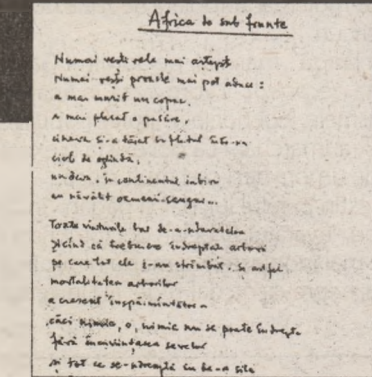 Africa de sub frunte
Numai vești rele mai aștept
Numai vești proaste mai pot aduce:
a mai murit un copac,
a mai plecat o pasăre,
cineva și-a tăiat sufletul într-un
ciob de oglindă,
undeva, în continentul iubirii
au năvălit oamenii-
Toate vînturile bat de-a-ndaratelea
zicînd că trebuiesc îndreptați arborii
pe care tot ele i-au strîmbat, și astfel
mortalitatea arborilor
a crescut înspăimîntător
căci nimic, o, nimic nu se poate îndrepta
fără încuviințarea sevelor
și tot ce se-ndreaptă cu de-a sila